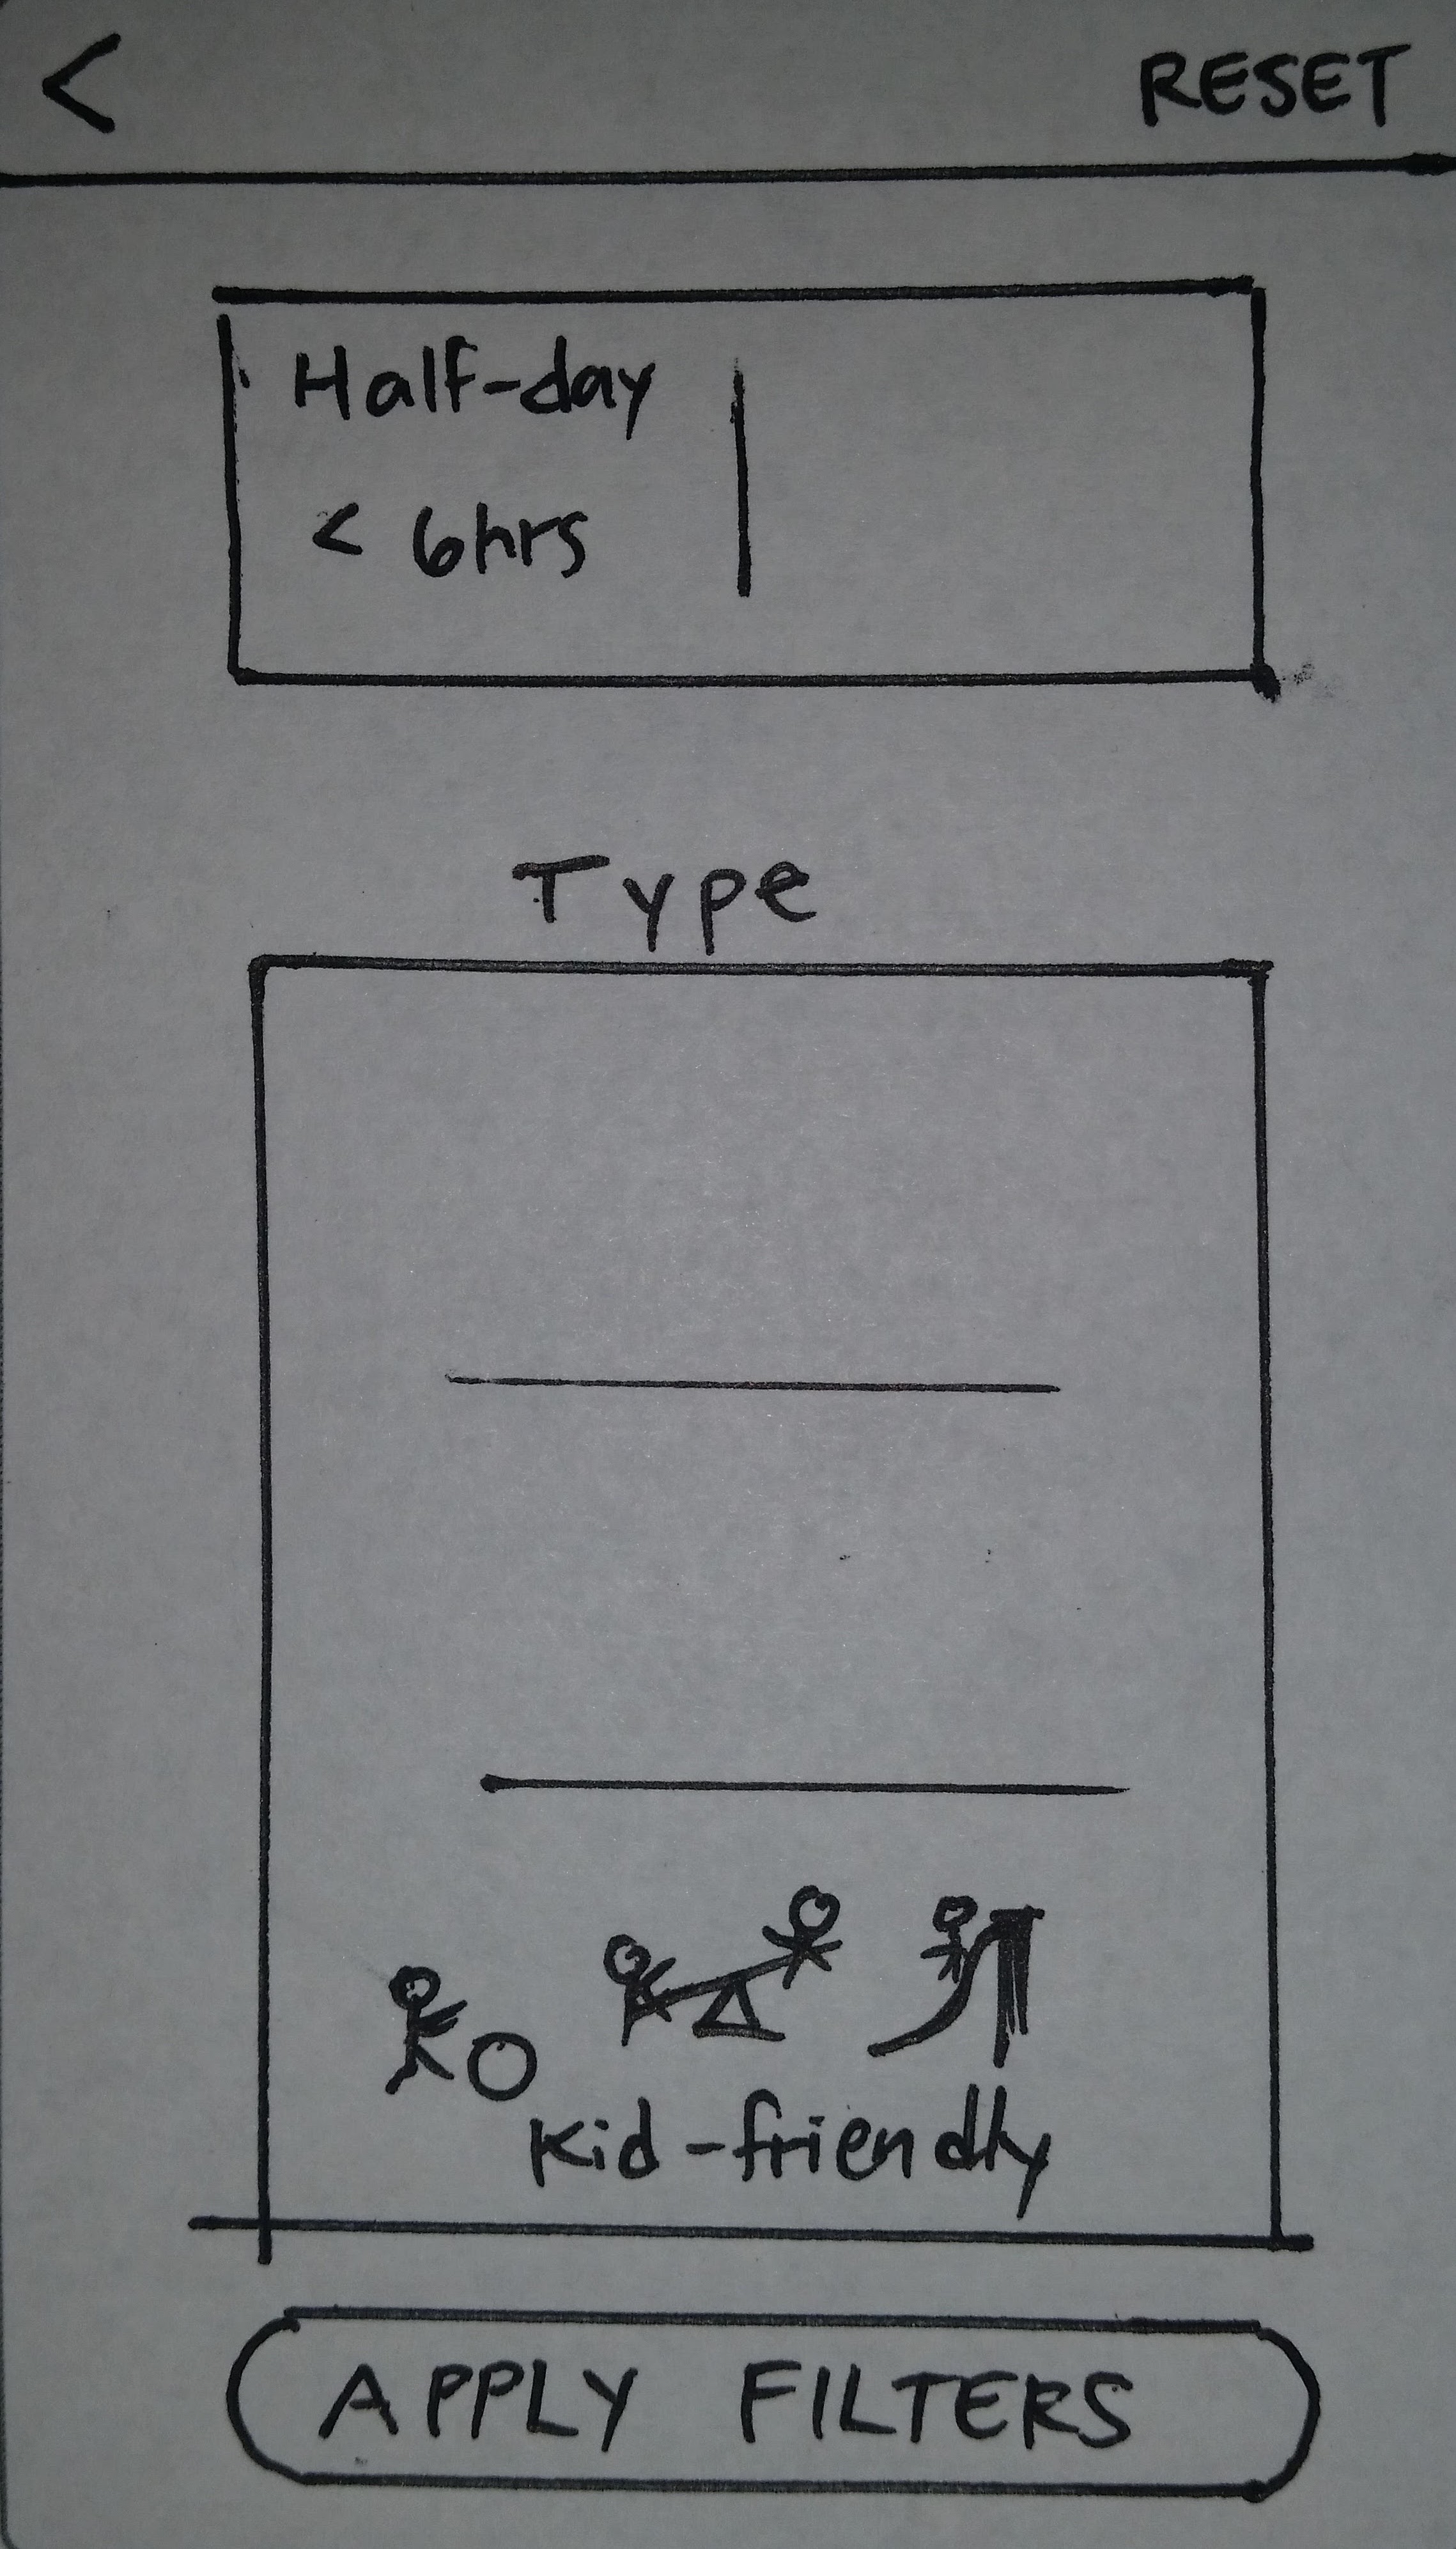 < RESET
Half-day
< 6hrs
Type
Kid-friendly
APPLY FILTERS